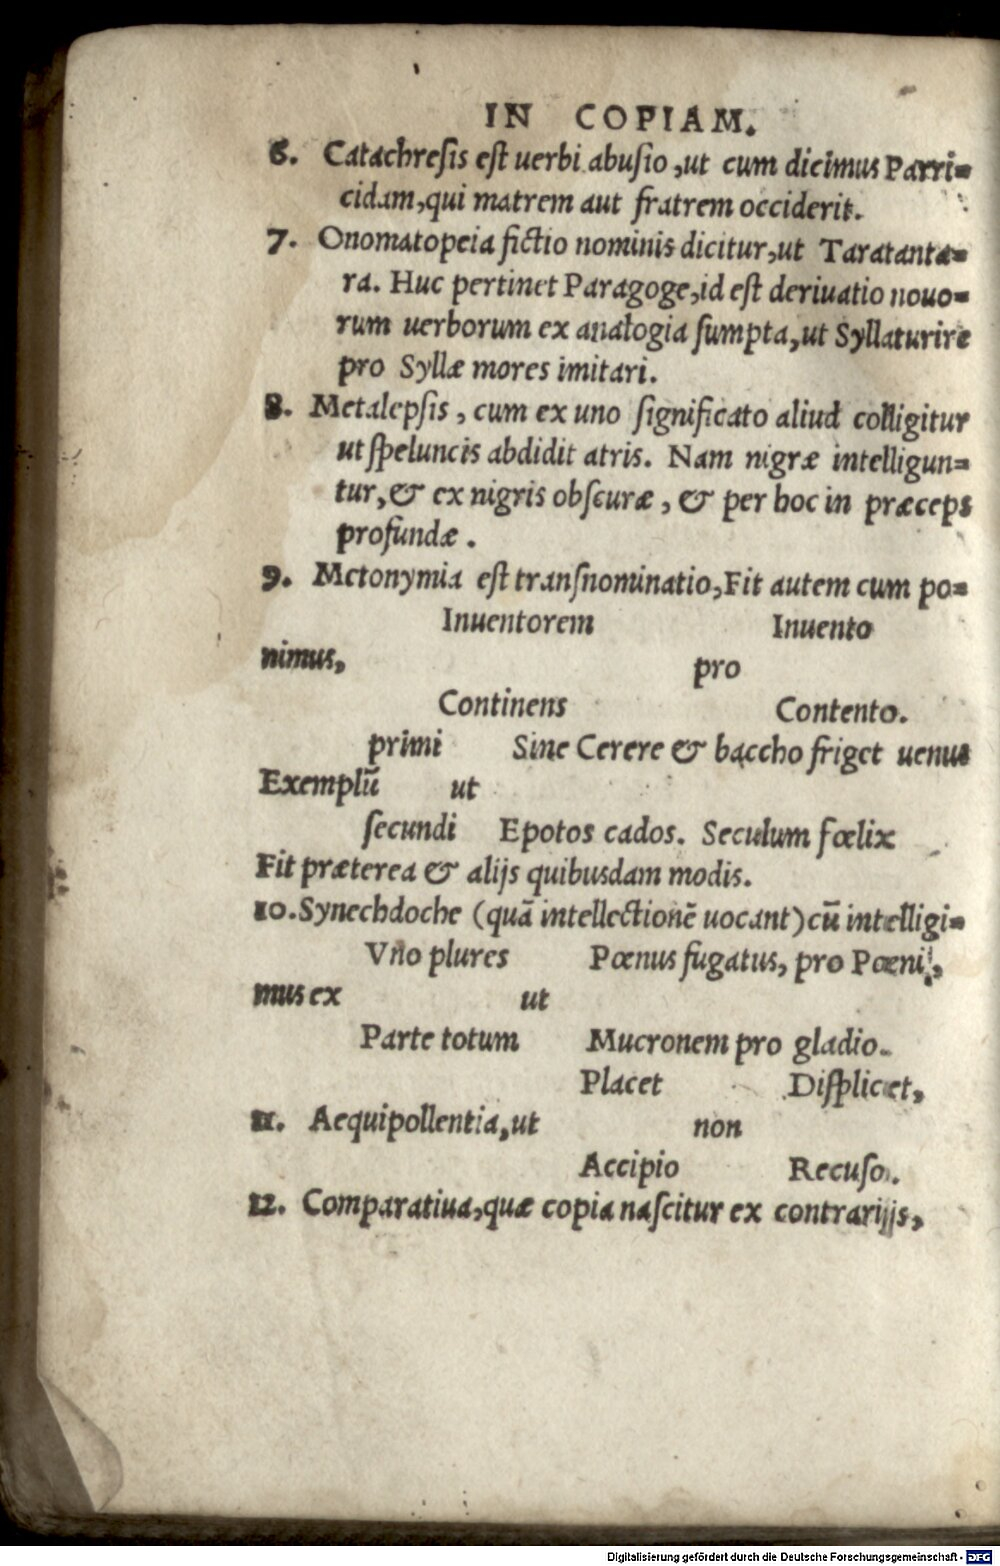 IN COPIAM.
6. Catachreſis eſt uerbi abuſio, ut cum dicimus Parri=
cidam, qui matrem aut fratrem occiderit.
7. Onomatopeia fictio nominis dicitur, ut Taratanta=
ra. Huc pertinet Paragoge, id eſt deriuatio nouo=
rum uerborum ex analogia ſumpta, ut Syllaturire
pro Syllæ mores imitari.
8. Metalepſis, cum ex uno ſignificato aliud colligitur
ut ſpeluncis abdidit atris. Nam nigræ intelligun=
tur, & ex nigris obſcuræ, & per hoc in præceps
profundæ.
9. Metonymia eſt tranſnominatio, Fit autem cum po=
Inuentorem Inuento
nimus, pro
Continens Contento.
primi Sine Cerere & baccho friget uenus
Exemplũ ut
ſecundi Epotos cados. Seculum fœlix
Fit præterea & alijs quibusdam modis.
10. Synechdoche (quã intellectionẽ uocant) cũ intelligi=
Vno plures Pœnus fugatus, pro Pœni,
mus ex ut
Parte totum Mucronem pro gladio.
Placet Diſplicet,
11. Aequipollentia, ut non
Accipio Recuſo.
12. Comparatiua, quæ copia naſcitur ex contrarijs,
Digitalisierung gefördert durch die Deutsche Forschungsgemeinschaft - DFG